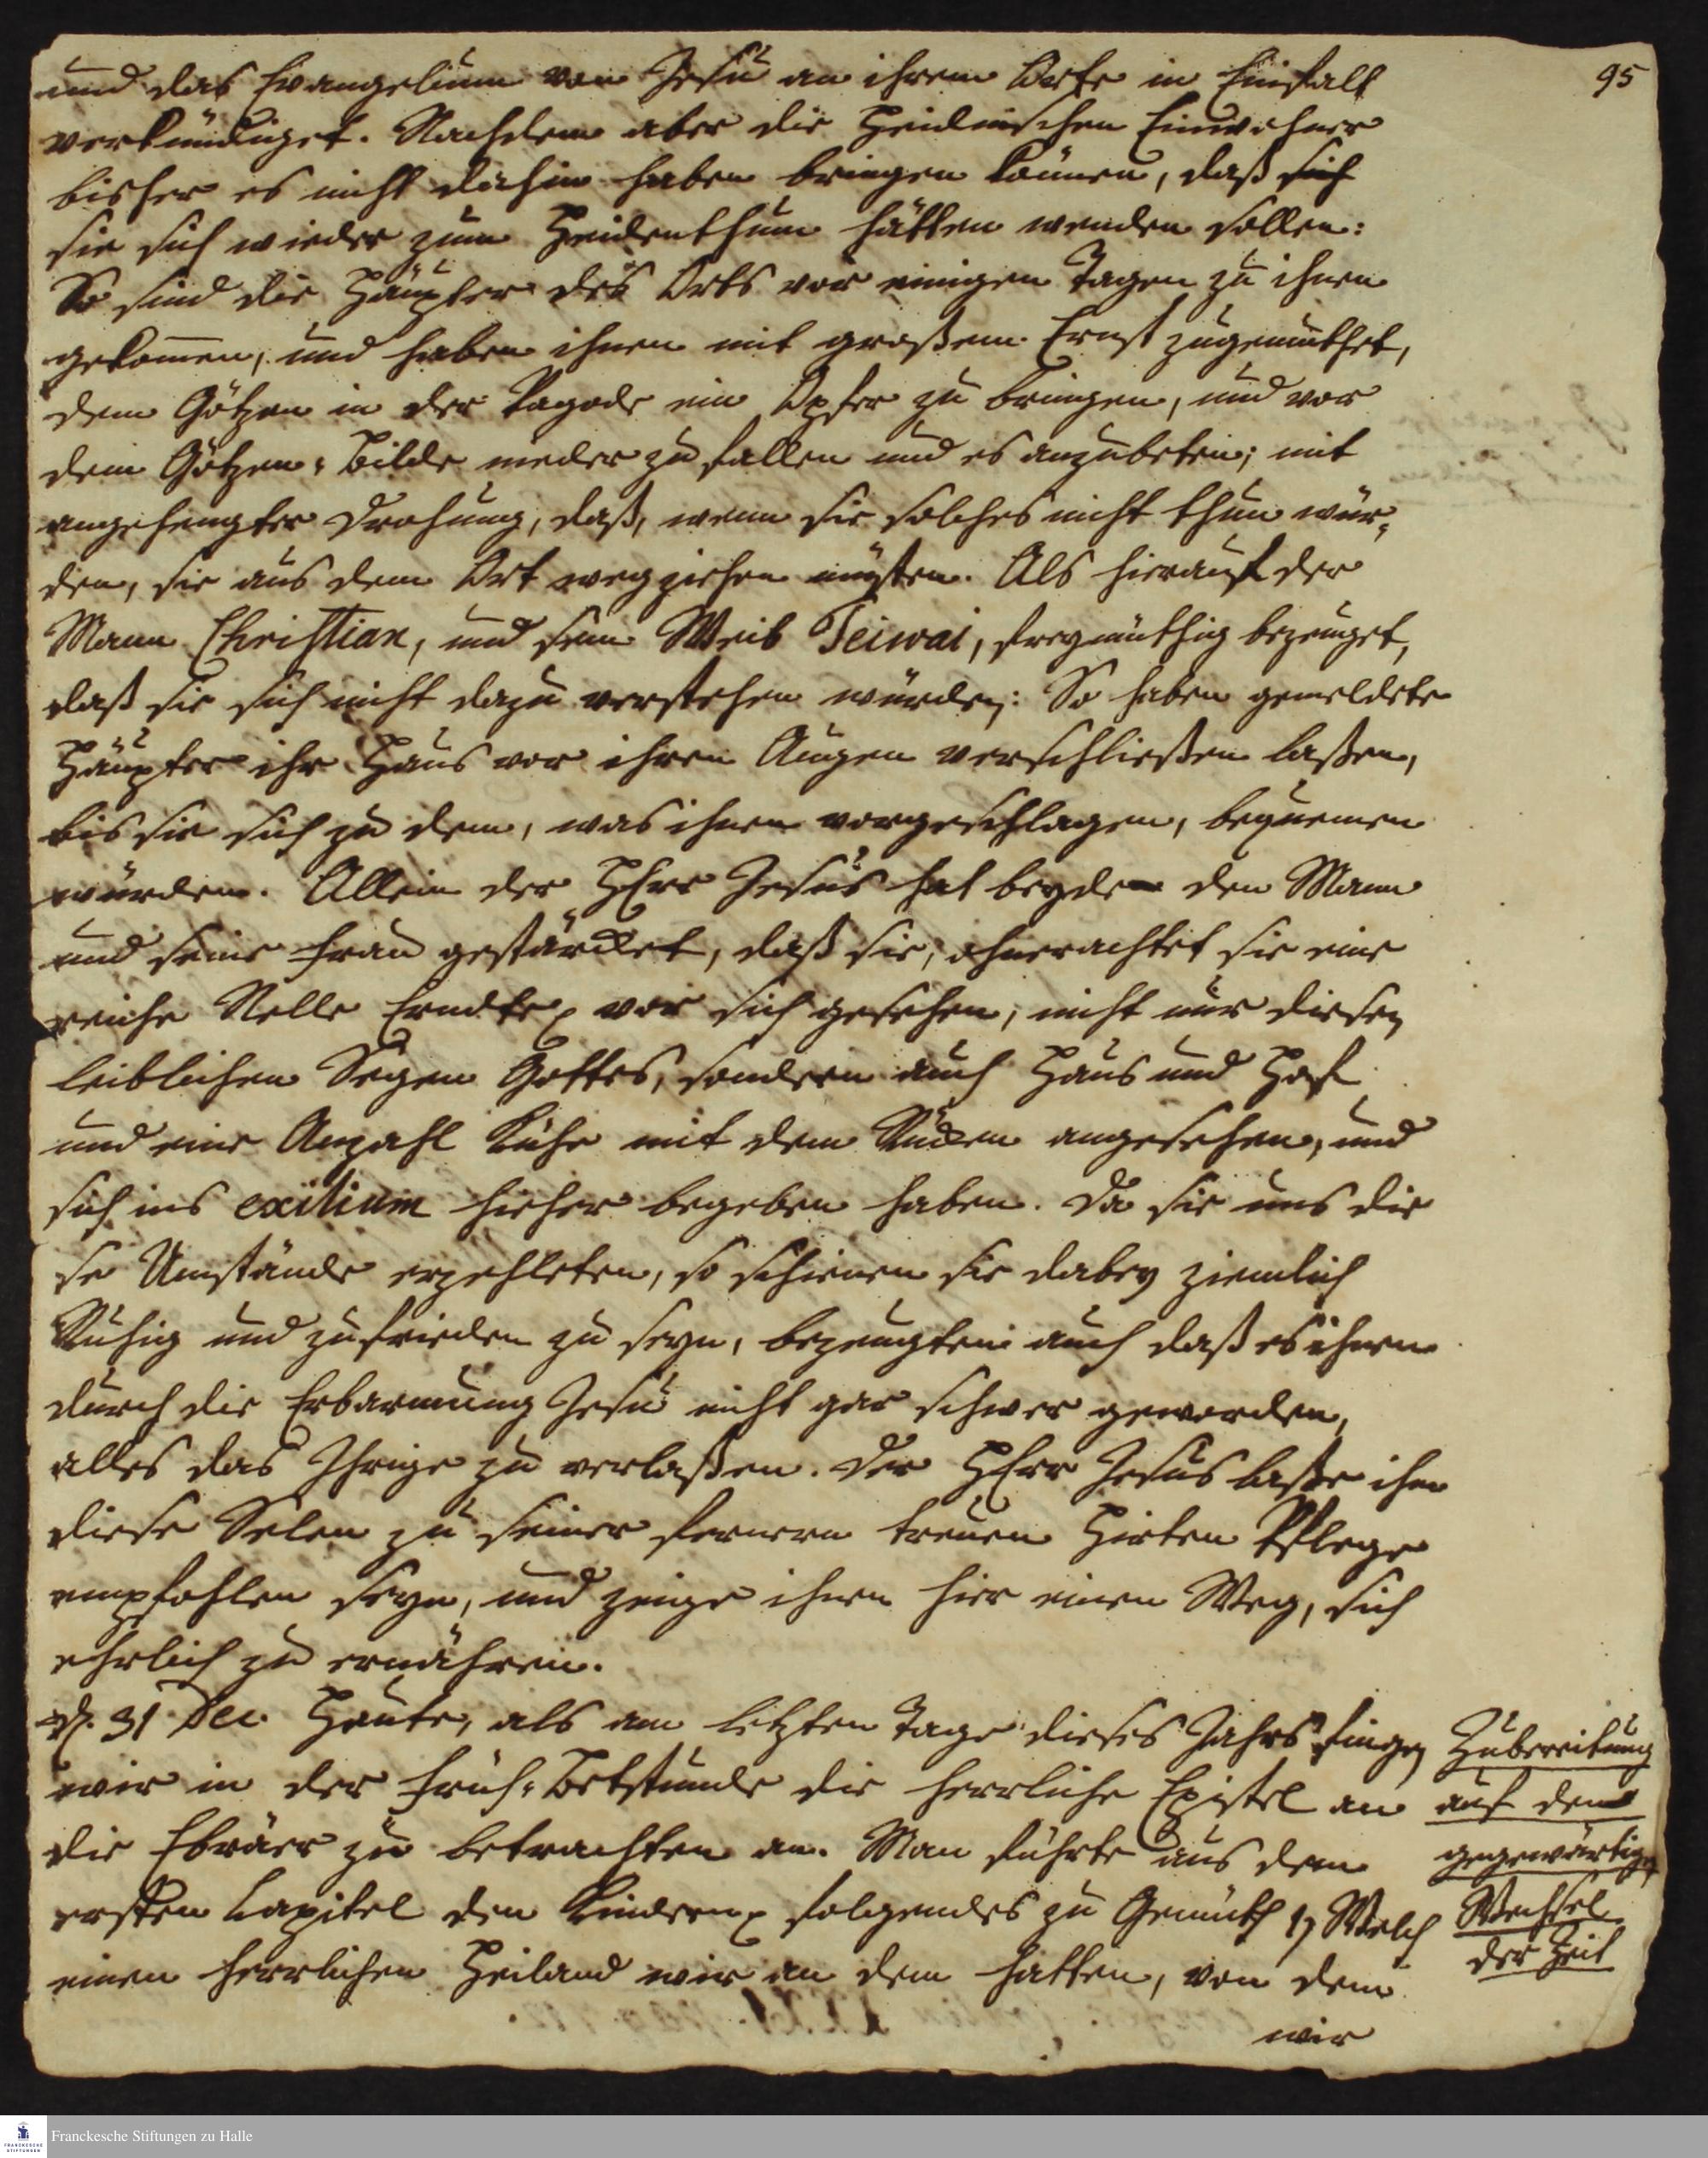 95
und das Evangelium von Jesu an ihrem Orte in Einfalt
verkündiget. Nachdem aber die Heidnischen Einwohner
bisher es nicht dahin haben bringen können, daß sich
sie sich wieder zum Heidenthum hätten wenden sollen:
So sind die Häupter des Orts vor einigen Tagen zu ihnen
gekom̄en, und haben ihnen mit großem Ernst zugemuthet,
dem Götzen in der Pagode ein Opfer zu bringen, und vor
dem Götzen-Bilde nieder zu fallen und es anzubeten; mit
angehengter Drohung, daß, wenn sie solches nicht thun wür-
den, sie aus dem Ort weg ziehen müsten. Als hierauf der
Mann Christian, und sein Weib Teiwai, freymüthig bezeuget,
daß sie sich nicht dazu verstehen würden: So haben gemeldete
Häupter ihr Haus vor ihren Augen verschließen laßen,
bis sie sich zu dem, was ihnen vorgeschlagen, bequemen
würden. Allein der HErr Jesus hat beyde den Mann
und seine Frau gestärcket, daß sie, ohnerachtet sie eine
reiche Nelle Erndte vor sich gesehen, nicht nur diesen
leiblichen Segen Gottes, sondern auch Haus und Hof
und eine Anzahl Kühe mit dem Rücken angesehen, und
sich ins exilium hieher begeben haben. Da sie uns die
se Umstände erzehleten, so schienen sie dabey ziemlich
Ruhig und zufrieden zu seyn, bezeugten auch daß es ihnen
durch die Erbarmung Jesu nicht gar schwer geworden,
alles das Ihrige zu verlaßen. Der HErr Jesus laße ihm
diese Selen zu seiner fernern treuen Hirten Pflege
empfohlen seyn, und zeige ihnen hier einen Weg, sich
ehrlich zu ernähren.
d. 31 Dec. Heute, als am letzten Tage dieses Jahrs fingen
wir in der Früh-Betstunde die herrliche Epistel an
die Ebräer zu betrachten an. Man führte aus dem
ersten Capitel den Kindern folgendes zu Gemüth 1) Welch
einen herrlichen Heiland wir an dem hätten, von dem
wir
Zubereitung
auf den
gegenwärtigen
Wechsel
der Zeit
FRANCKESCHE
STIFTUNGEN
Franckesche Stiftungen zu Halle